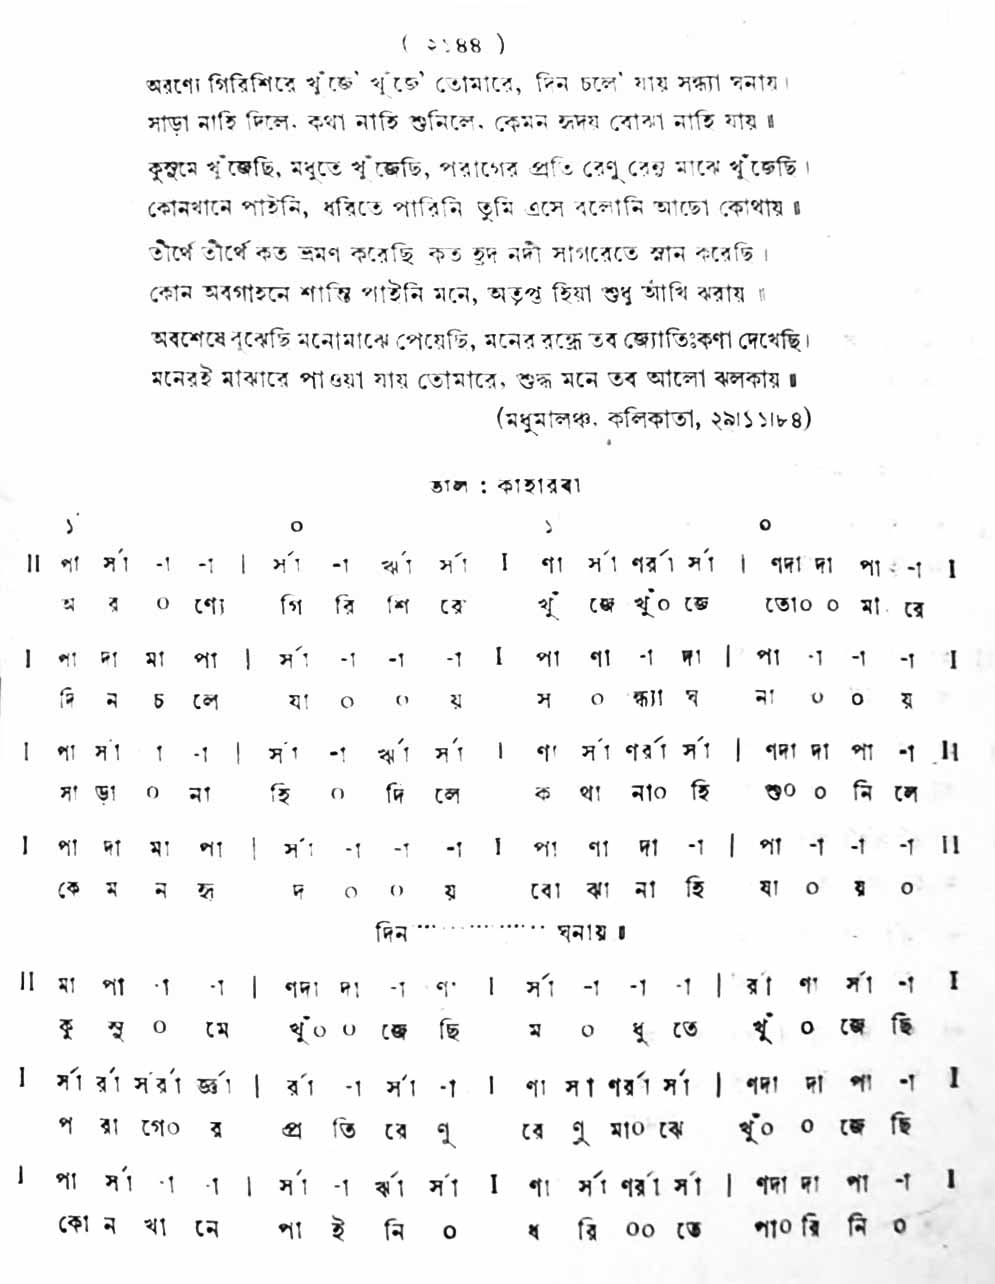 ( ২১৪৪ )
অরণ্যে গিরিশিরে খুঁজে' খুঁজে' তোমারে, দিন চলে' যায় সন্ধ্যা ঘনায়।
সাড়া নাহি দিলে, কথা নাহি শুনিলে, কেমন হৃদয় বোঝা নাহি যায়॥
কুসুমে খুঁজেছি, মধুতে খুঁজেছি, পরাগের প্রতি রেণু রেণু মাঝে খুঁজেছি।
কোনখানে পাইনি, ধরিতে পারিনি তুমি এসে বলোনি আছো কোথায়॥
তীর্থে তীর্থে কত ভ্রমণ করেছি কত হ্রদ নদী সাগরেতে স্নান করেছি।
কোন অবগাহনে শান্তি পাইনি মনে, অতৃপ্ত হিয়া শুধু আঁখি ঝরায়॥
অবশেষে বুঝেছি মনোমাঝে পেয়েছি, মনের রন্ধ্রে তব জ্যোতিঃকণা দেখেছি।
মনেরই মাঝারে পাওয়া যায় তোমারে, শুদ্ধ মনে তব আলো ঝলকায়॥
(মধুমালঞ্চ, কলিকাতা, ২৯।১১।৮৪)
তাল : কাহারবা
১´ ০ ১ ০
II পা র্সা -া -া | র্সা -া র্ঋা র্সা I ণা র্সা ণর্রা র্সা | ণদা দা পা -া I
অ র ০ ণ্যে গি রি শি রে খুঁ জে খুঁ০ জে তো০ ০ মা রে
I পা দা মা পা | র্সা -া -া -া I পা ণা -া দা | পা -া -া -া I
দি ন চ লে যা ০ ০ য় স ০ ন্ধ্যা ঘ না ০ ০ য়
I পা র্সা া -া | র্সা -া র্ঋা র্সা I ণা র্সা ণর্রা র্সা | ণদা দা পা -া II
সা ড়া ০ না হি ০ দি লে ক থা না০ হি শু০ ০ নি লে
I পা দা মা পা | র্সা -া -া -া I পা ণা দা -া | পা -া -া -া II
কে ম ন হৃ দ ০ ০ য় বো ঝা না হি যা ০ য় ০
দিন ................ ঘনায়॥
II মা পা -া -া | ণদা দা -া ণা I র্সা -া -া -া | র্রা ণা র্সা -া I
কু সু ০ মে খুঁ০ ০ জে ছি ম ০ ধু তে খুঁ ০ জে ছি
I র্সা র্রা র্সর্রা র্জ্ঞা | র্রা -া র্সা -া I ণা সা ণর্রা র্সা | ণদা দা পা -া I
প রা গে০ র প্র তি রে ণু রে ণু মা০ ঝে খুঁ০ ০ জে ছি
I পা র্সা -া -া | র্সা -া র্ঋা র্সা I ণা র্সা ণর্রা র্সা | ণদা দা পা -া I
কো ন খা নে পা ই নি ০ ধ রি ০০ তে পা০ রি নি ০